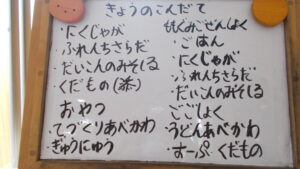 きょうのこんだて
・にくじゃが
・ふれんちさらだ
・だいこんのみそしる
・くだもの(添)
おやつ
・てづくりあべかわ
・ぎゅうにゅう
・ごはん
・にくじゃが
・ふれんちさらだ
・だいこんのみそしる
ごごしょく
・うどんあべかわ
・すーぷ くだもの